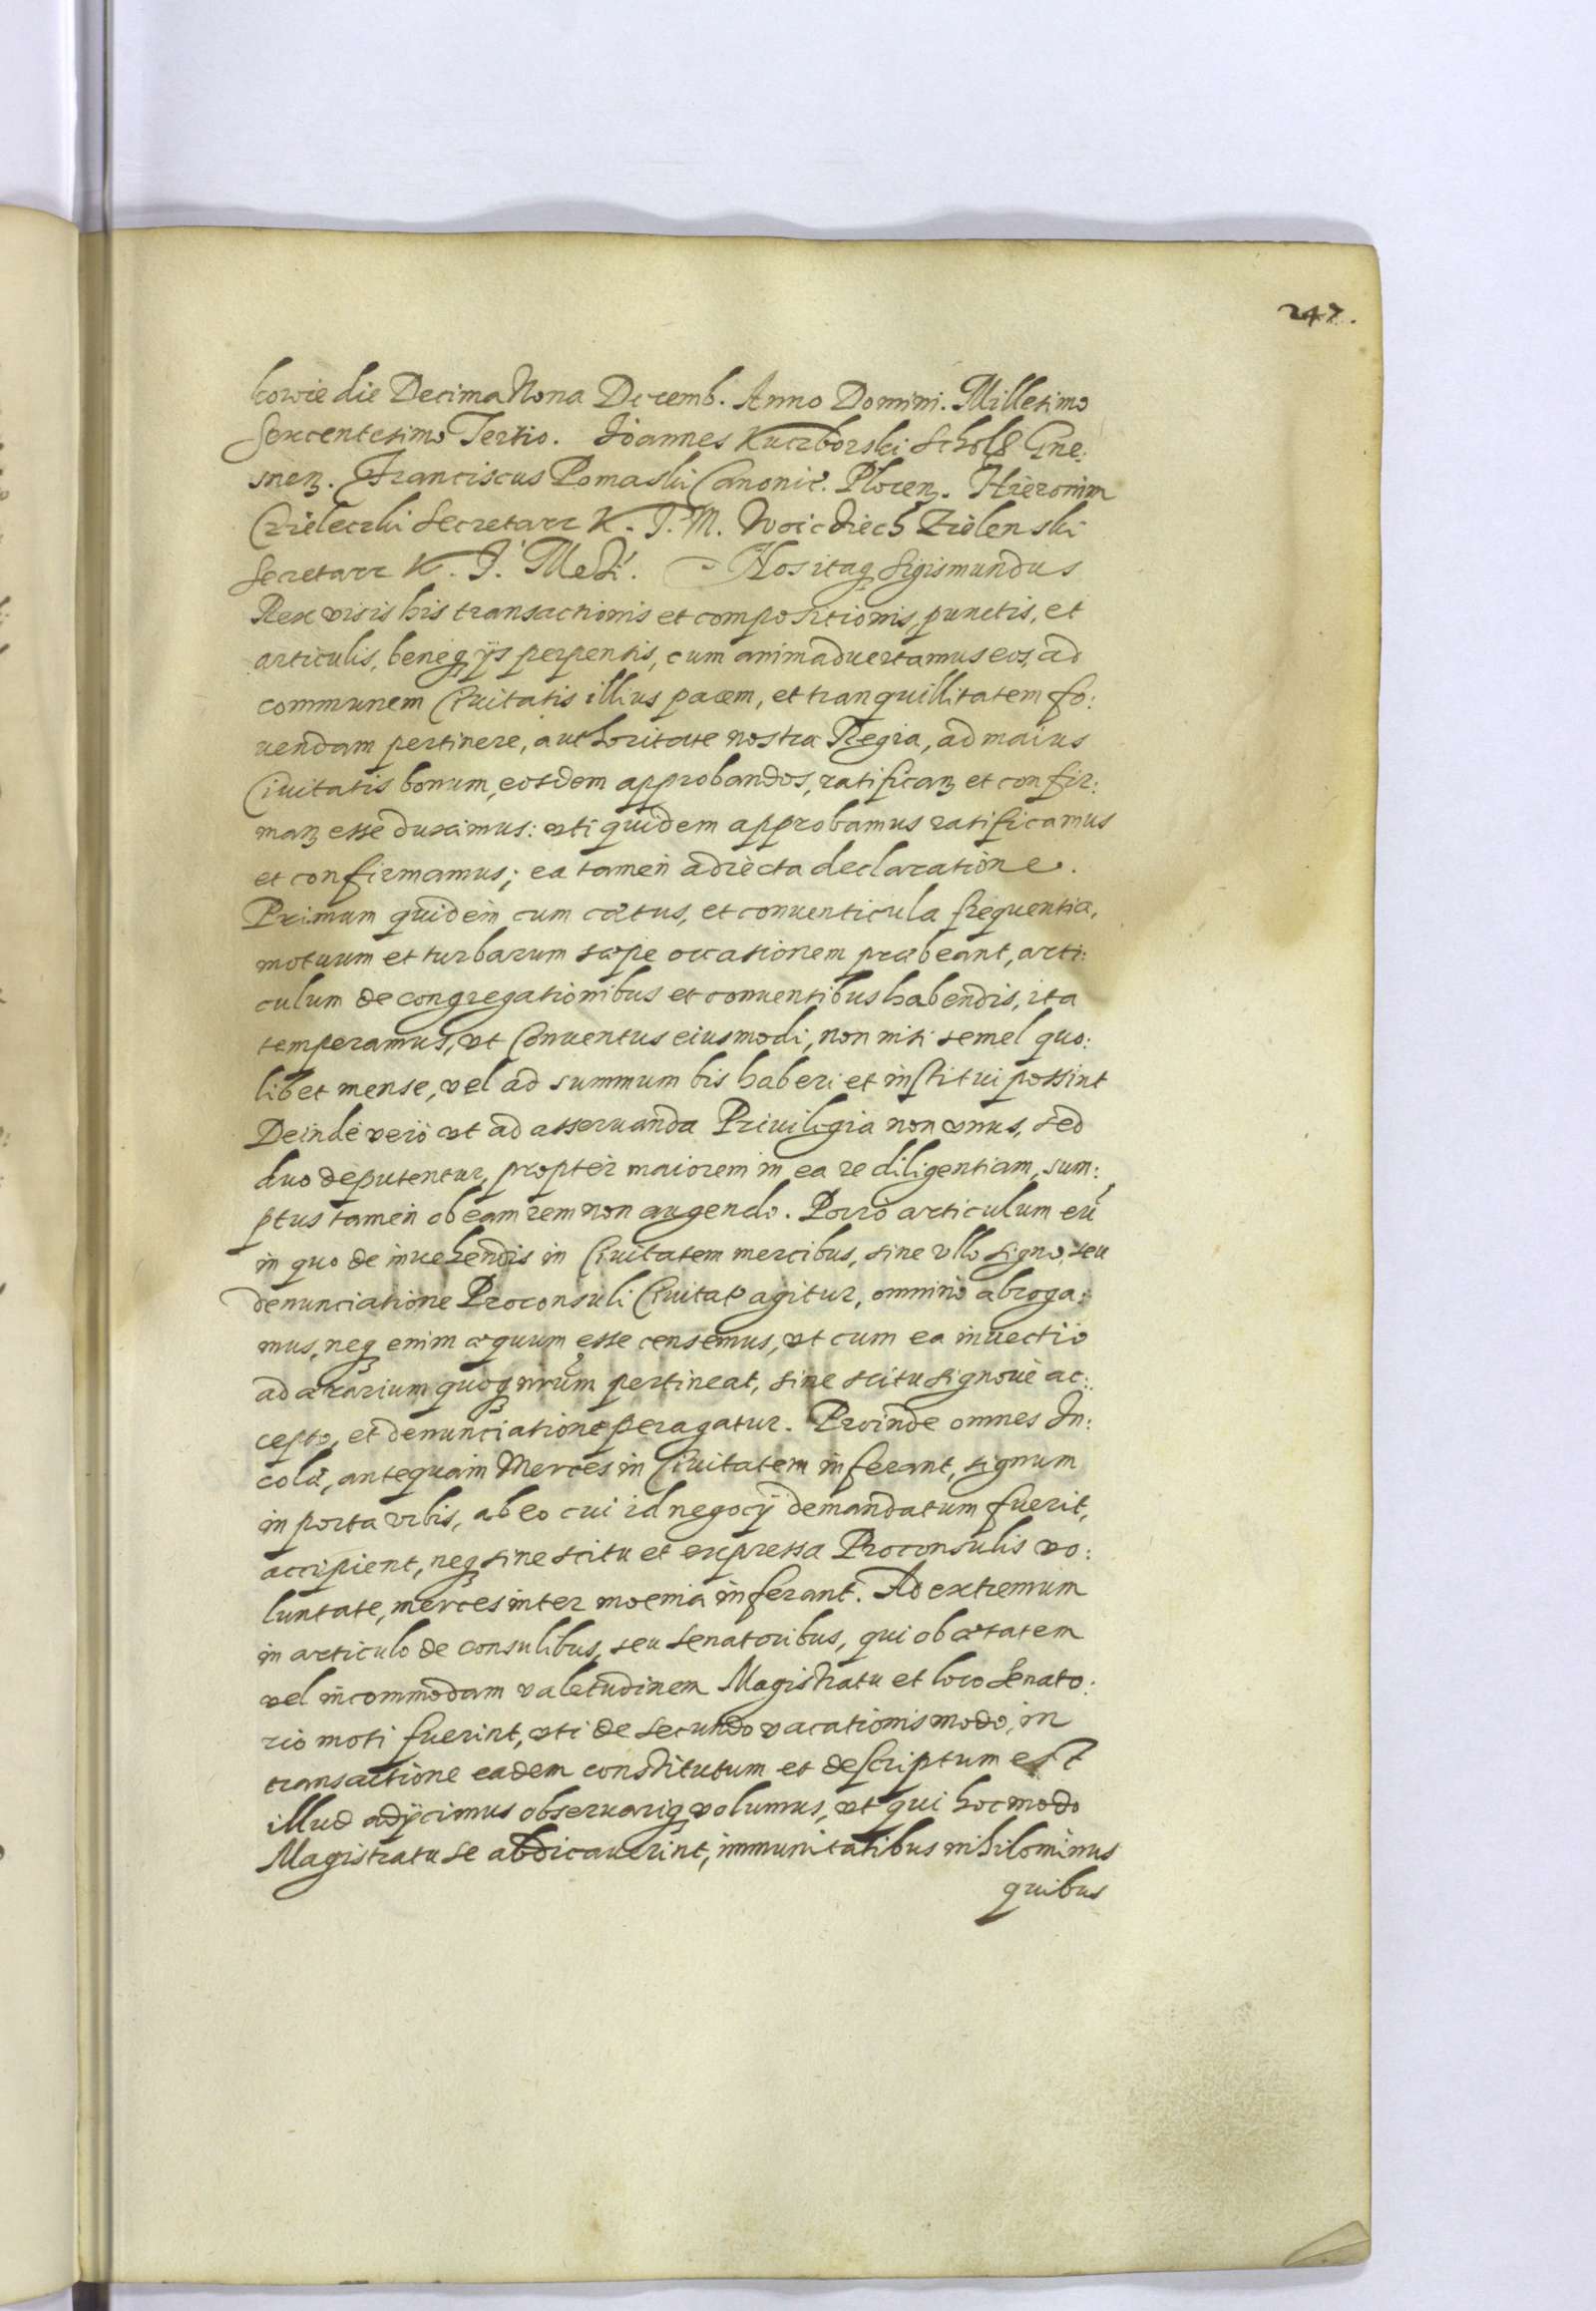 247.
kowie die Decima Nona Decemb. Anno Domini. Millesimo
Sexcentesimo Tertio. Joannes Kuczborski Schol Gne:
snen. Franciscus Lomaski Canonic. Plocen. Hieronim
Cieleczki Secretarz K. J. M. Woicdiech Zielenski
Secretarz K. J. Mcsti. Nos itaq Sigismundus
Rex visis his transactionis et compositionis, punctis, et
articulis, beneq ijs perpensis, cum animaduertamus eos, ad
communem Ciuitatis illius pacem, et tranquillitatem fo:
uendam pertinere, authoritate nostra Regia, ad maius
Ciuitatis bonum, eosdem approbandos, ratifican et confir:
man esse duximus: vti quidem approbamus ratificamus
et confirmamus; ea tamen adiecta declaratione.
Primum quidem cum cœtus, et conuenticula frequentia,
motuum et turbarum sæpe occasionem præbeant, arti:
culum de congregationibus et conuentibus habendis, ita
temperamus, vt Conuentus eiusmodi, non nisi semel quo:
libet mense, vel ad summum bis haberi et institui possint
Deinde vero vt ad asseruanda Priuilegia non vnus, sed
duo deputentur, propter maiorem in ea re diligentiam, sum:
ptus tamen ob eam rem non augendo. Porro articulum eũ
in quo de inuehendis in Ciuitatem mercibus, sine vllo signo, seu
denunciatione Proconsuli Ciuitat agitur, omnino abroga:
mus, neq enim æquum esse censemus, vt cum ea inuectio
ad ærarium quoq nrum pertineat, sine scitu signoue ac:
cepto, et denunciatione peragatur. Proinde omnes In:
colæ, antequam Merces in Ciuitatem inferant, signum
in porta vrbis, ab eo cui id negocij demandatum fuerit,
accipient, neq sine scitu et expressa Proconsulis vo:
luntate, merces inter moenia inferant. Ad extremum
in articulo de consulibus, seu Senatoribus, qui ob ætatem
vel incommodam valetudinem Magistratu et loco Senato:
rio moti fuerint, vti de secundo vacationis modo, in
transactione eadem constitutum et descriptum est
illud adijcimus obseruariq volumus, vt qui hoc modo
Magistratu se abdicauerint, immunitatibus nihilominus
quibus